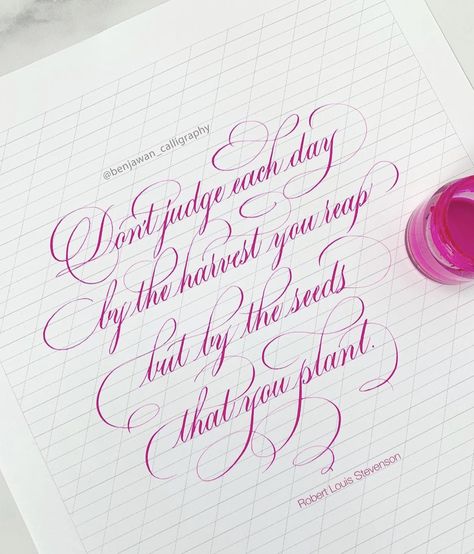 @benjawan_calligraphy
Don't judge each day
by the harvest you reap
but by the seeds
that you plant.
Robert Louis Stevenson